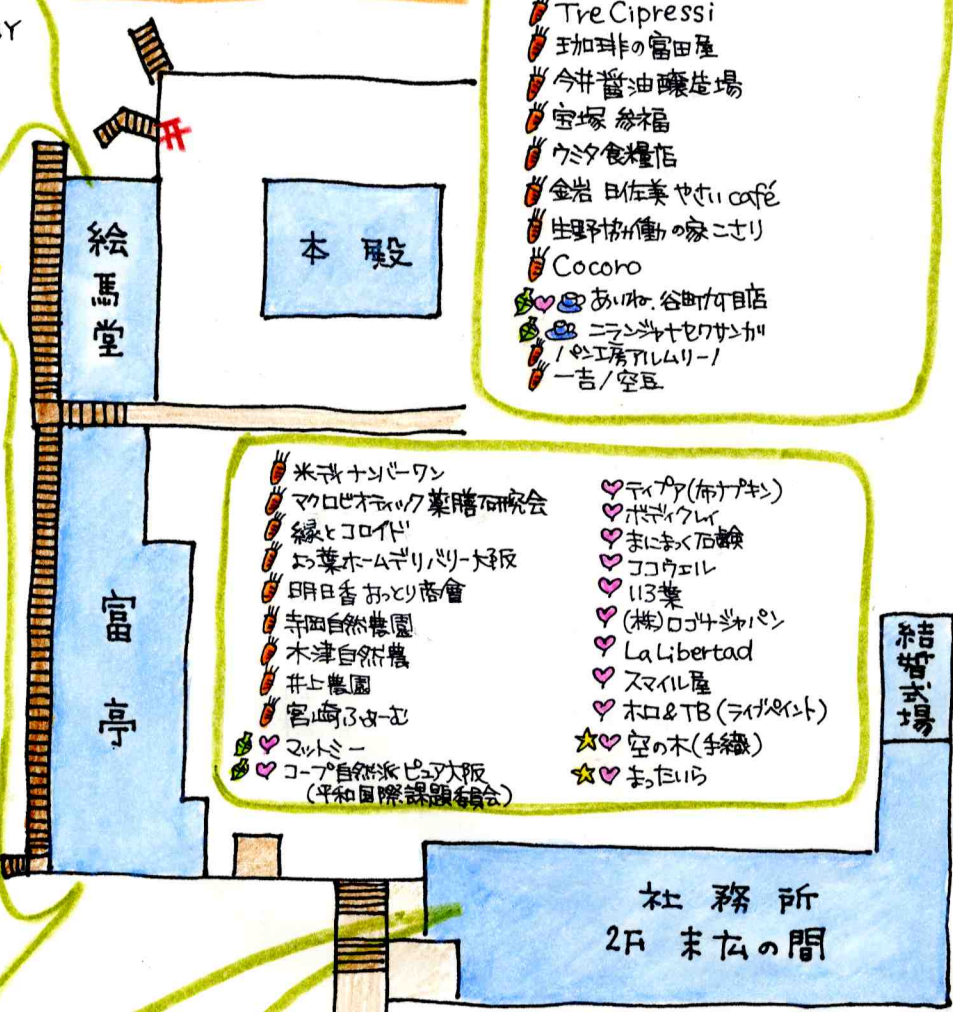 Tre Cipressi
珈琲の富田屋
今井醤油醸造場
宝塚 参福
ウミタ食糧店
金岩 日佐美 やさい café
生野協働の家こさり
Cocoro
あいね、谷町六丁目店
ニランジャナセワサンガ
パン工房アルムリーノ
一吉/空豆
絵馬堂
本殿
富亭
米ディナンバーワン
マクロビオティック薬膳研究会
縁とコロイド
よつ葉ホームデリバリー大阪
明日香おっとり商會
寺田自然農園
木津自然農
井上農園
宮崎ふぁーむ
マットミー
コープ自然派ピュア大阪
(平和国際課題委員会)
ティプア(布ナプキン)
ボディクレイ
まにまっく石鹸
ココウェル
113葉
(株)ロゴナジャパン
La Libertad
スマイル屋
ホロ&TB(ライブペイント)
空の木(手織)
まったいら
結婚式場
社務所
2F 末広の間